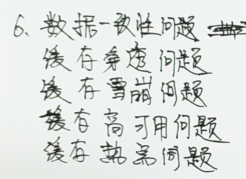 6、数据一致性问题
缓存穿透问题
缓存雪崩问题
缓存高可用问题
缓存热点问题